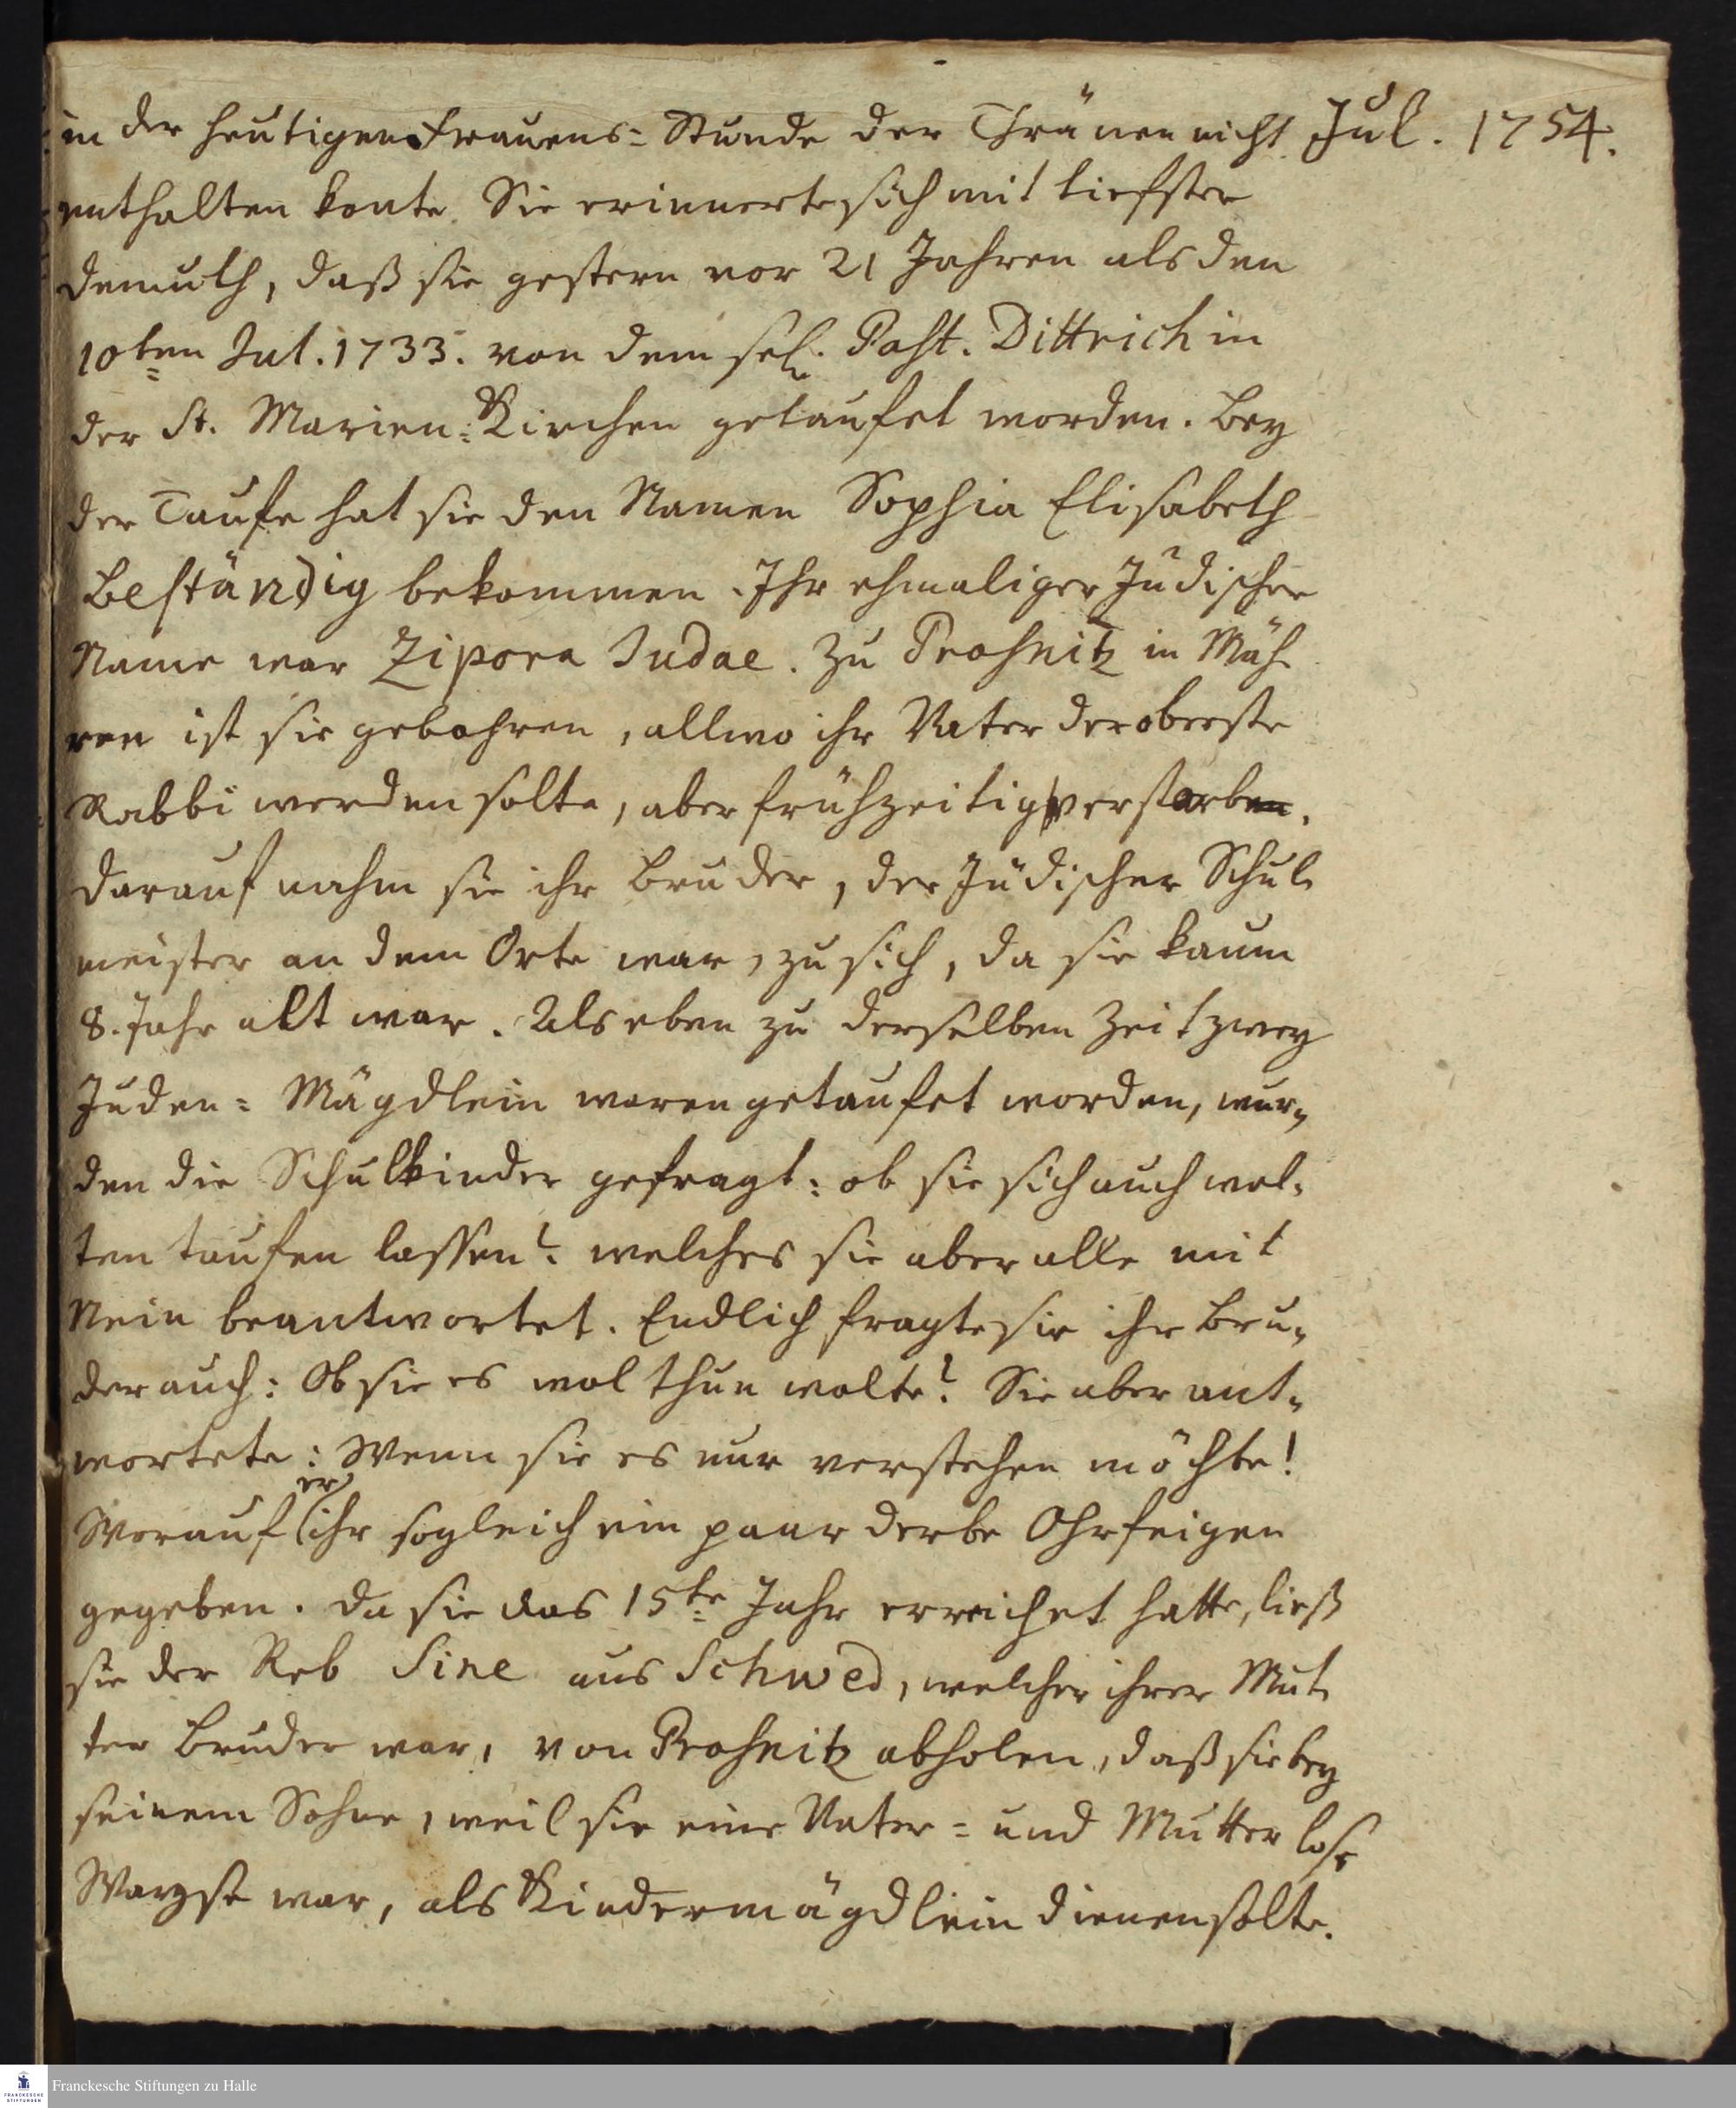 in der heutigen Frauens-Stunde der Thränen nicht Jul. 1754.
enthalten konte. Sie erinnerte sich mit tiefster
Demuth, daß sie gestern vor 21 Jahren als den
10ten Jul. 1733. von dem sel. Past. Dittrich in
der St. Marien-Kirchen getaufet worden. Bey
der Taufe hat sie den Namen Sophia Elisabeth
Beständig bekommen. Ihr ehmaliger Jüdischer
Name war Zipora Judae. Zu Prosnitz in Mäh-
ren ist sie gebohren, allwo ihr Vater der oberste
Rabbi werden solte, aber frühzeitig verstarb.
Darauf nahm sie ihr Bruder, der Jüdischer Schul-
meister an dem Orte war, zu sich, da sie kaum
8. Jahr alt war. Als eben zu derselben Zeit zwey
Juden-Mägdlein waren getaufet worden, wur-
den die Schulkinder gefragt: ob sie sich auch wol-
ten taufen lassen? welches sie aber alle mit
Nein beantwortet. Endlich fragte sie ihr Bru-
der auch: Ob sie es wol thun wolte? Sie aber ant-
wortete: Wenn sie es nur verstehen möchte!
Worauf er ihr sogleich ein paar derbe Ohrfeigen
gegeben. Da sie das 15te Jahr erreichet hatte, ließ
sie der Reb Sine aus Schwed, welcher ihrer Mut-
ter Bruder war, von Prosnitz abholen, daß sie bey
seinem Sohne, weil sie eine Vater- und Mutter lose
Wayse war, als Kindermägdlein dienen solte.
Franckesche Stiftungen zu Halle
FRANCKESCHE
STIFTUNGEN